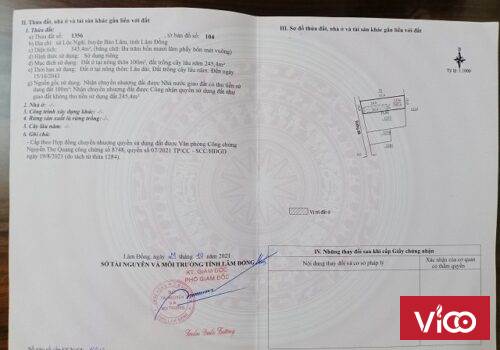 II. Thửa đất, nhà ở và tài sản khác gắn liền với đất
1. Thửa đất:
a) Thửa đất số: 1356 , tờ bản đồ số: 104
b) Địa chỉ: xã Lộc Ngãi, huyện Bảo Lâm, tỉnh Lâm Đồng
c) Diện tích: 345.4m², (bằng chữ: Ba trăm bốn mươi lăm phẩy bốn mét vuông)
d) Hình thức sử dụng: Sử dụng riêng
đ) Mục đích sử dụng: Đất ở tại nông thôn 100m², đất trồng cây lâu năm 245.4m²
e) Thời hạn sử dụng: Đất ở tại nông thôn: Lâu dài; Đất trồng cây lâu năm: Đến ngày
15/10/2043
g) Nguồn gốc sử dụng: Nhận chuyển nhượng đất được Nhà nước giao đất có thu tiền sử
dụng đất 100m²; Nhận chuyển nhượng đất được Công nhận quyền sử dụng đất như
giao đất không thu tiền sử dụng đất 245.4m².
2. Nhà ở: -/-
3. Công trình xây dựng khác: -/-
4. Rừng sản xuất là rừng trồng: -/-
5. Cây lâu năm: -/-
6. Ghi chú:
- Cấp theo Hợp đồng chuyển nhượng quyền sử dụng đất được Văn phòng Công chứng
Nguyễn Thọ Quang công chứng số 8748, quyển số 07/2021 TP/CC - SCC/HĐGD
ngày 19/8/2021 (do tách từ thửa 1284).
Lâm Đồng, ngày
2021
SỞ TÀI NGUYÊN VÀ MÔI TRƯỜNG TỈNH LÂM ĐỒNG
KT. GIÁM ĐỐC
PHÓ GIÁM ĐỐC
III. Sơ đồ thửa đất, nhà ở và tài sản khác gắn liền với đất
Tỷ lệ 1:1000
Vị trí đất ở
IV. Những thay đổi sau khi cấp Giấy chứng nhận
Nội dung thay đổi và cơ sở pháp lý
Xác nhận của cơ quan
có thẩm quyền
ViCO